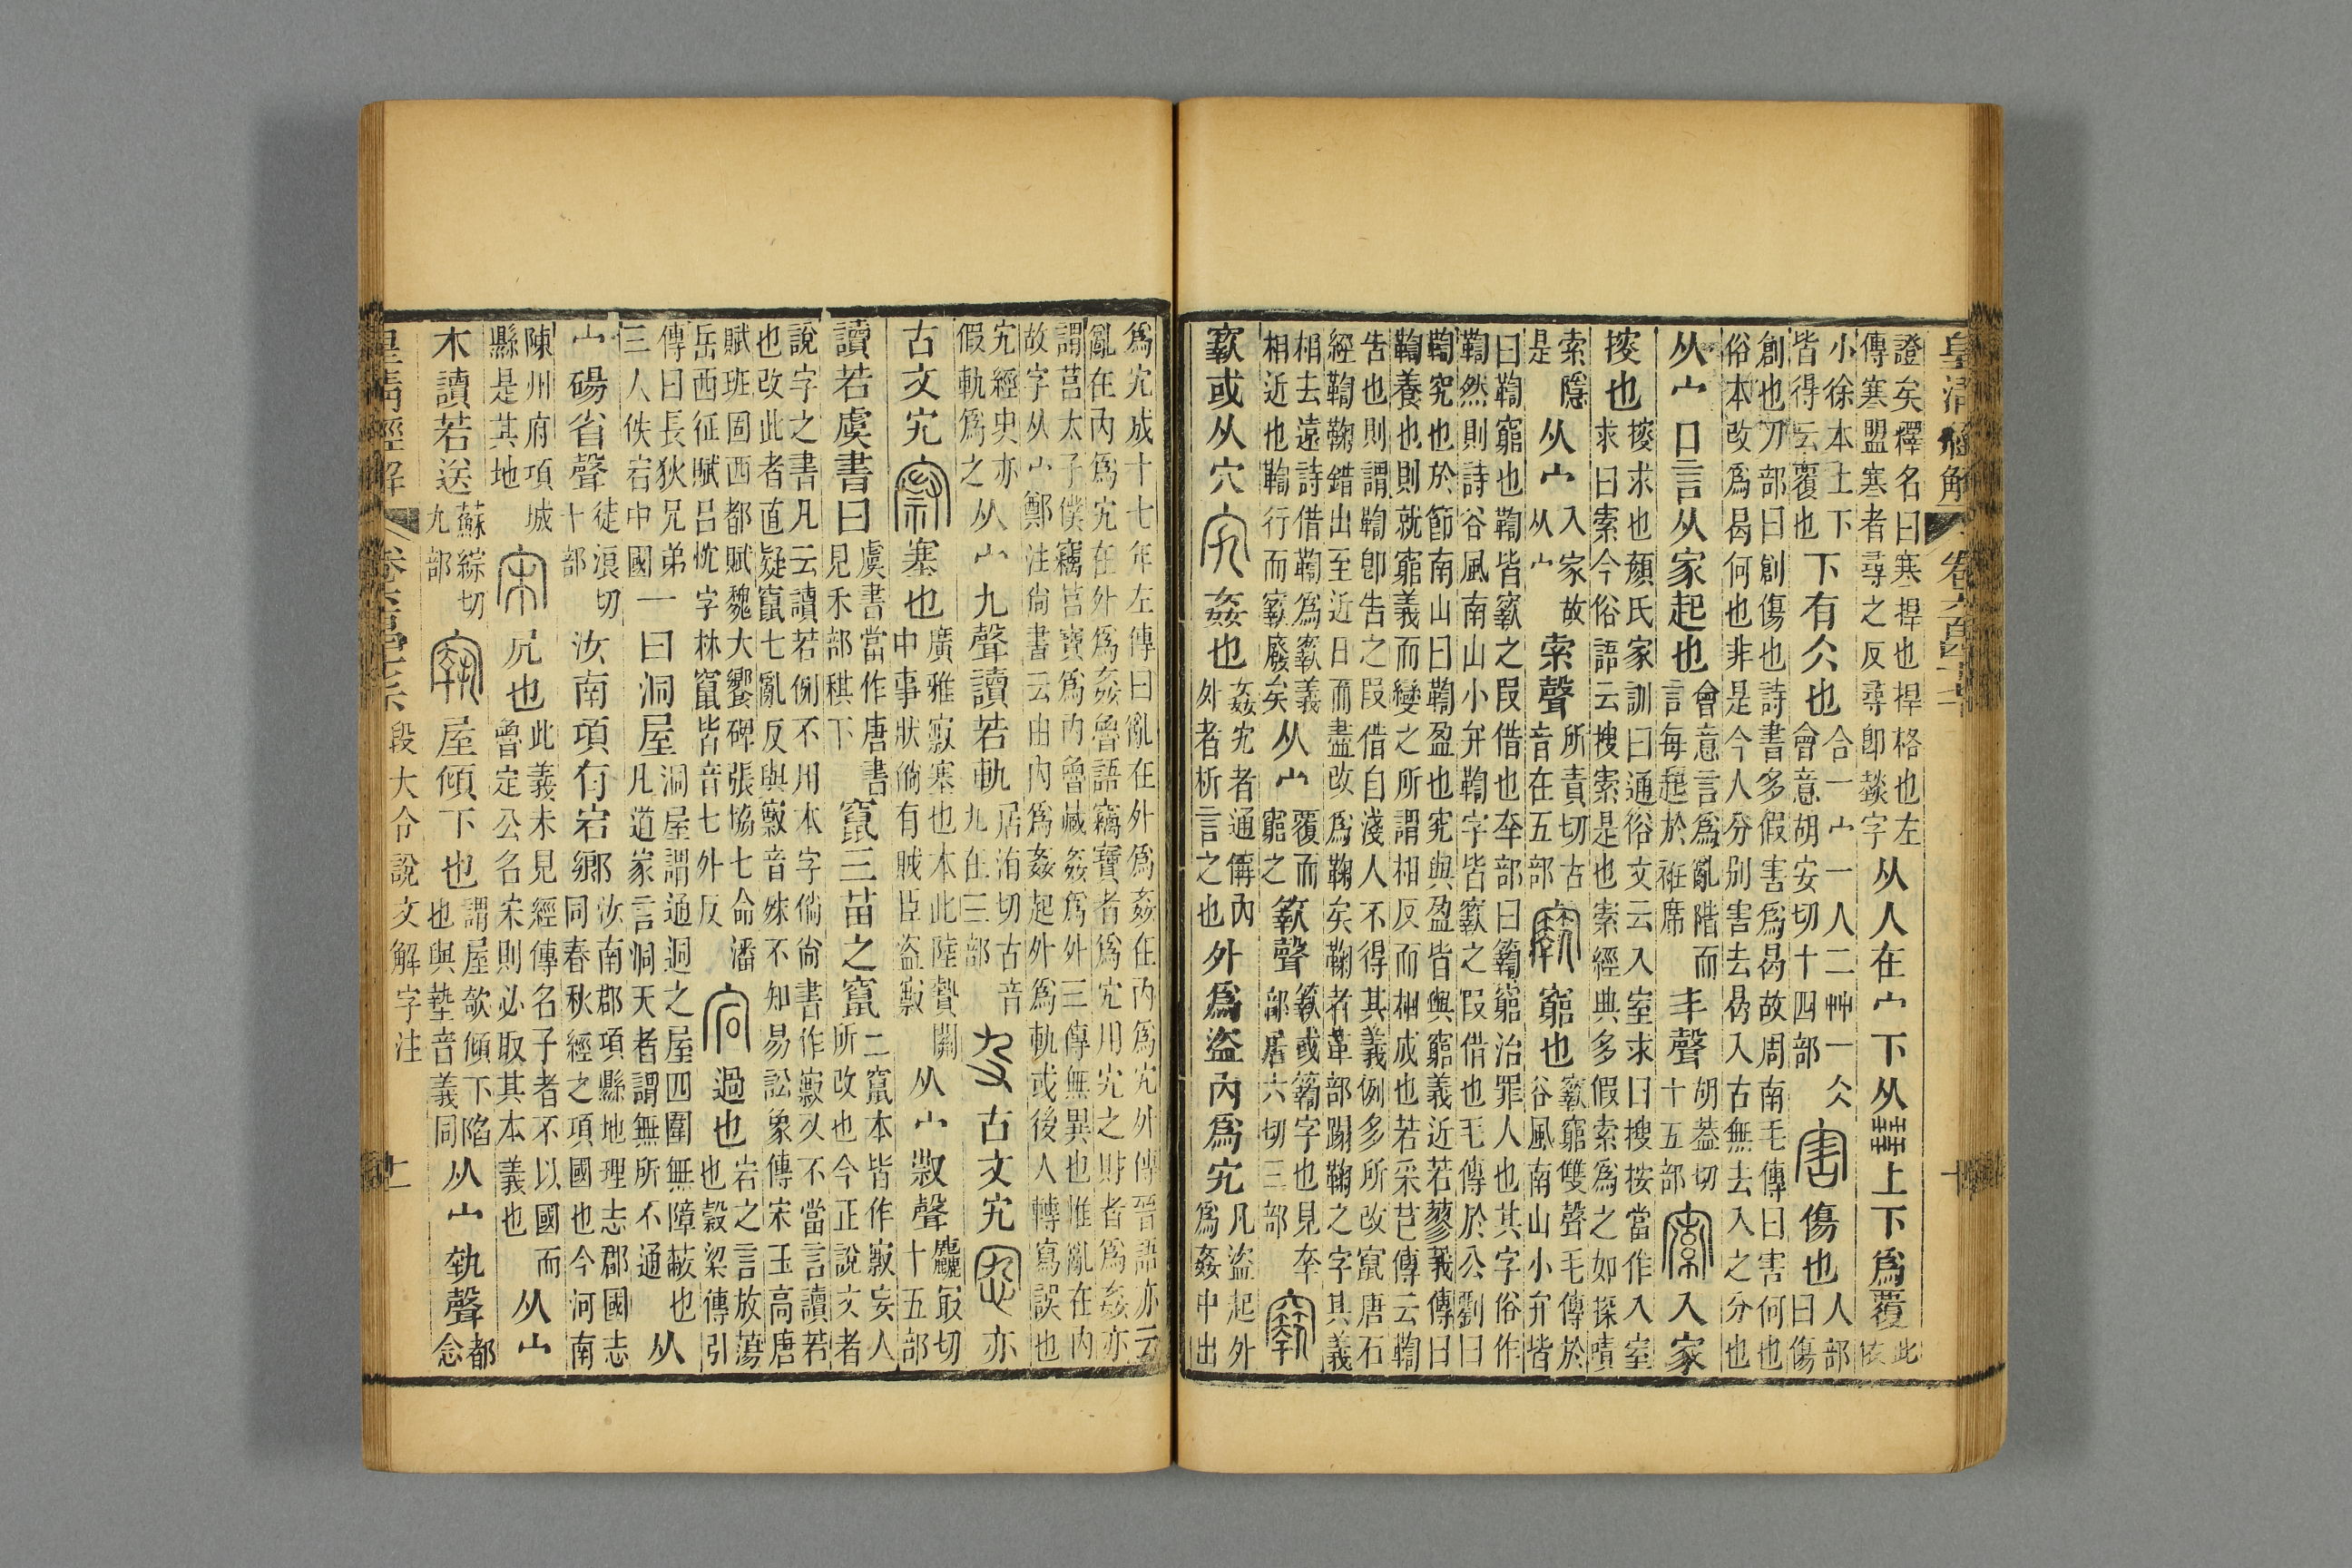 皇清經解 卷六百四十七 十
證矣釋名曰寒捍也捍格也左傳寒盟寒者尋之反尋卽燅字从人在宀下从茻上下爲覆此依
小徐本土下皆得云覆也下有仌也合一宀一人二艸一仌會意胡安切十四部害傷也人部曰傷
創也刀部曰創傷也詩書多假害爲曷故周南毛傳曰害何也俗本改爲曷何也非是今人分別害去曷入古無去入之分也
从宀口言从家起也會意言爲亂階而言每起於袵席丯聲胡葢切十五部𡩡入家
㨙也㨙求也顏氏家訓曰通俗文云入室求曰搜按當作入室求曰索今俗語云搜索是也索經典多假索爲之如探嘖
索隱是从宀入家故从宀索聲所責切古音在五部𡫬窮也𡫬窮雙聲毛傳於谷風南山小弁皆
曰鞫窮也鞫皆𡫬之叚借也㚔部曰𥷚窮治罪人也其字俗作鞫然則詩谷風南山小弁鞫字皆𡫬之叚借也毛傳於公劉曰
鞫究也於節南山曰鞫盈也究與盈皆與窮義近若蓼莪傳曰鞫養也則就窮義而變之所謂相反而相成也若采芑傳云鞫
告也則謂鞫卽告之叚借自淺人不得其義例多所改竄唐石經鞫鞠錯出至近日而盡改爲鞠矣鞠者革部蹋鞠之字其義
相去遠詩借鞫爲𡫬義相近也鞫行而𡫬廢矣从宀覆而窮之𥷚聲𥷚或𥷚字也見㚔部居六切三部
𡫬或从穴宄姦也姦宄者通偁內外者析言之也外爲盜內爲宄凡盜起外爲姦中出
爲宄成十七年左傳曰亂在外爲姦在內爲宄外傳晉語亦云亂在內爲宄在外爲姦魯語竊寶者爲宄用宄之財者爲姦亦
謂莒太子僕竊莒寶爲內魯藏姦爲外三傳無異也惟亂在內故字从宀鄭注尙書云由內爲姦起外爲軌或後人轉寫誤也
宄經史亦假軌爲之从宀九聲讀若軌居洧切古音九在三部𡚾古文宄𡧍亦
古文宄𥨥塞也廣雅𥨥塞也本此陸贄關中事狀徜有賊臣盜𥨥从宀㕞聲麤最切十五部
讀若虞書曰虞書當作唐書見禾部稘下竄三苗之竄二竄本皆作𥨥妄人所改也今正說文者
說字之書凡云讀若例不用本字徜尙書作𥨥又不當言讀若也改此者直疑竄七亂反與𥨥音殊不知易訟象傳宋玉高唐
賦班固西都賦魏大饗碑張協七命潘岳西征賦呂忱字林竄皆音七外反宕過也宕之言放蕩也穀梁傳引
傳曰長狄兄弟三人佚宕中國一曰洞屋洞屋謂通迵之屋四圍無障蔽也凡道家言洞天者謂無所不通从
宀碭省聲徒浪切十部汝南項有宕鄉汝南郡項縣地理志郡國志同春秋經之項國也今河南
陳州府項城縣是其地宋凥也此義未見經傳名子者不以國而魯定公名宋則必取其本義也从宀
木讀若送蘇綜切九部𡪠屋傾下也謂屋欹傾下陷也與墊音義同从宀執聲都念
皇清經解 卷六百四十七 段大令說文解字注 十一